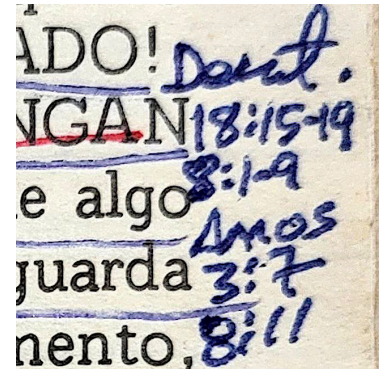 ADO! Deut.
NGAN 18:15-19
8:1-9
e algo
Amos
guarda 3:7
mento, 8:11